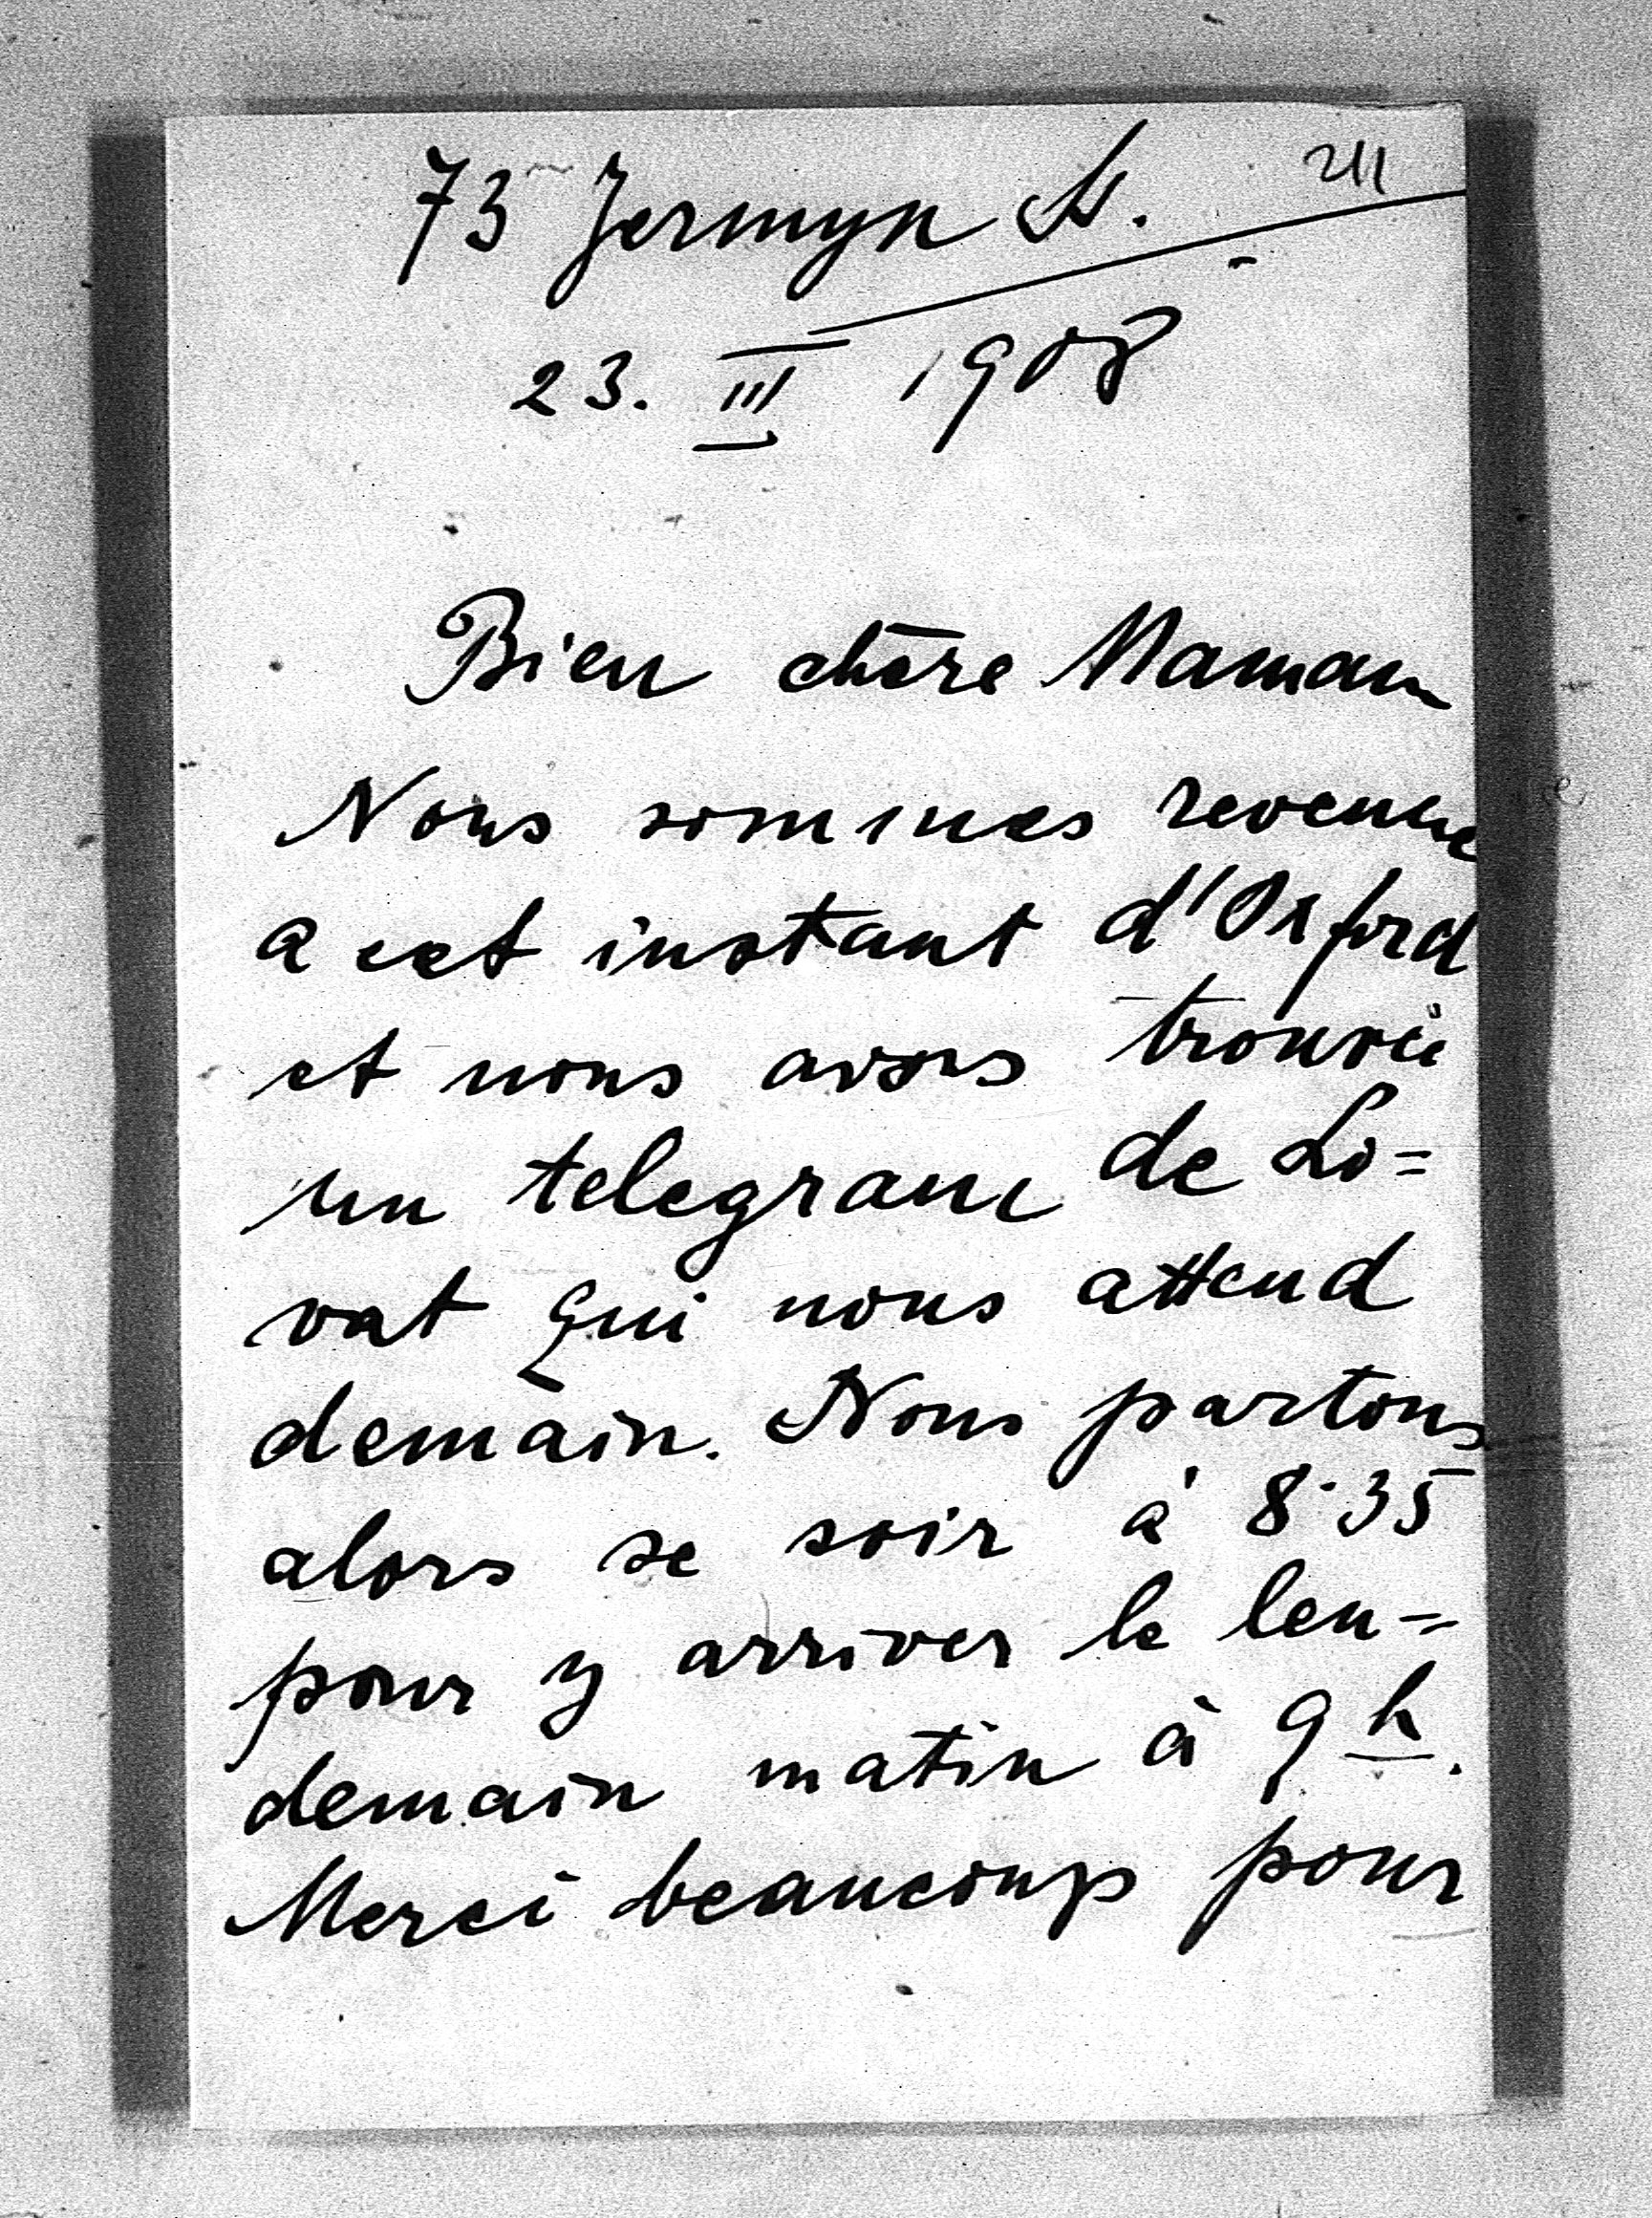 211
73 Jermyn St.
23. III 1908
Bien chère Maman
Nous sommes revenus
a cet instant d'Oxford
et nous avons trouvé
un telegram de Lo=
vat qui nous attend
demain. Nous partons
alors se soir à 8·35
pour y arriver le len=
demain matin à 9 h.
Merci beaucoup pour